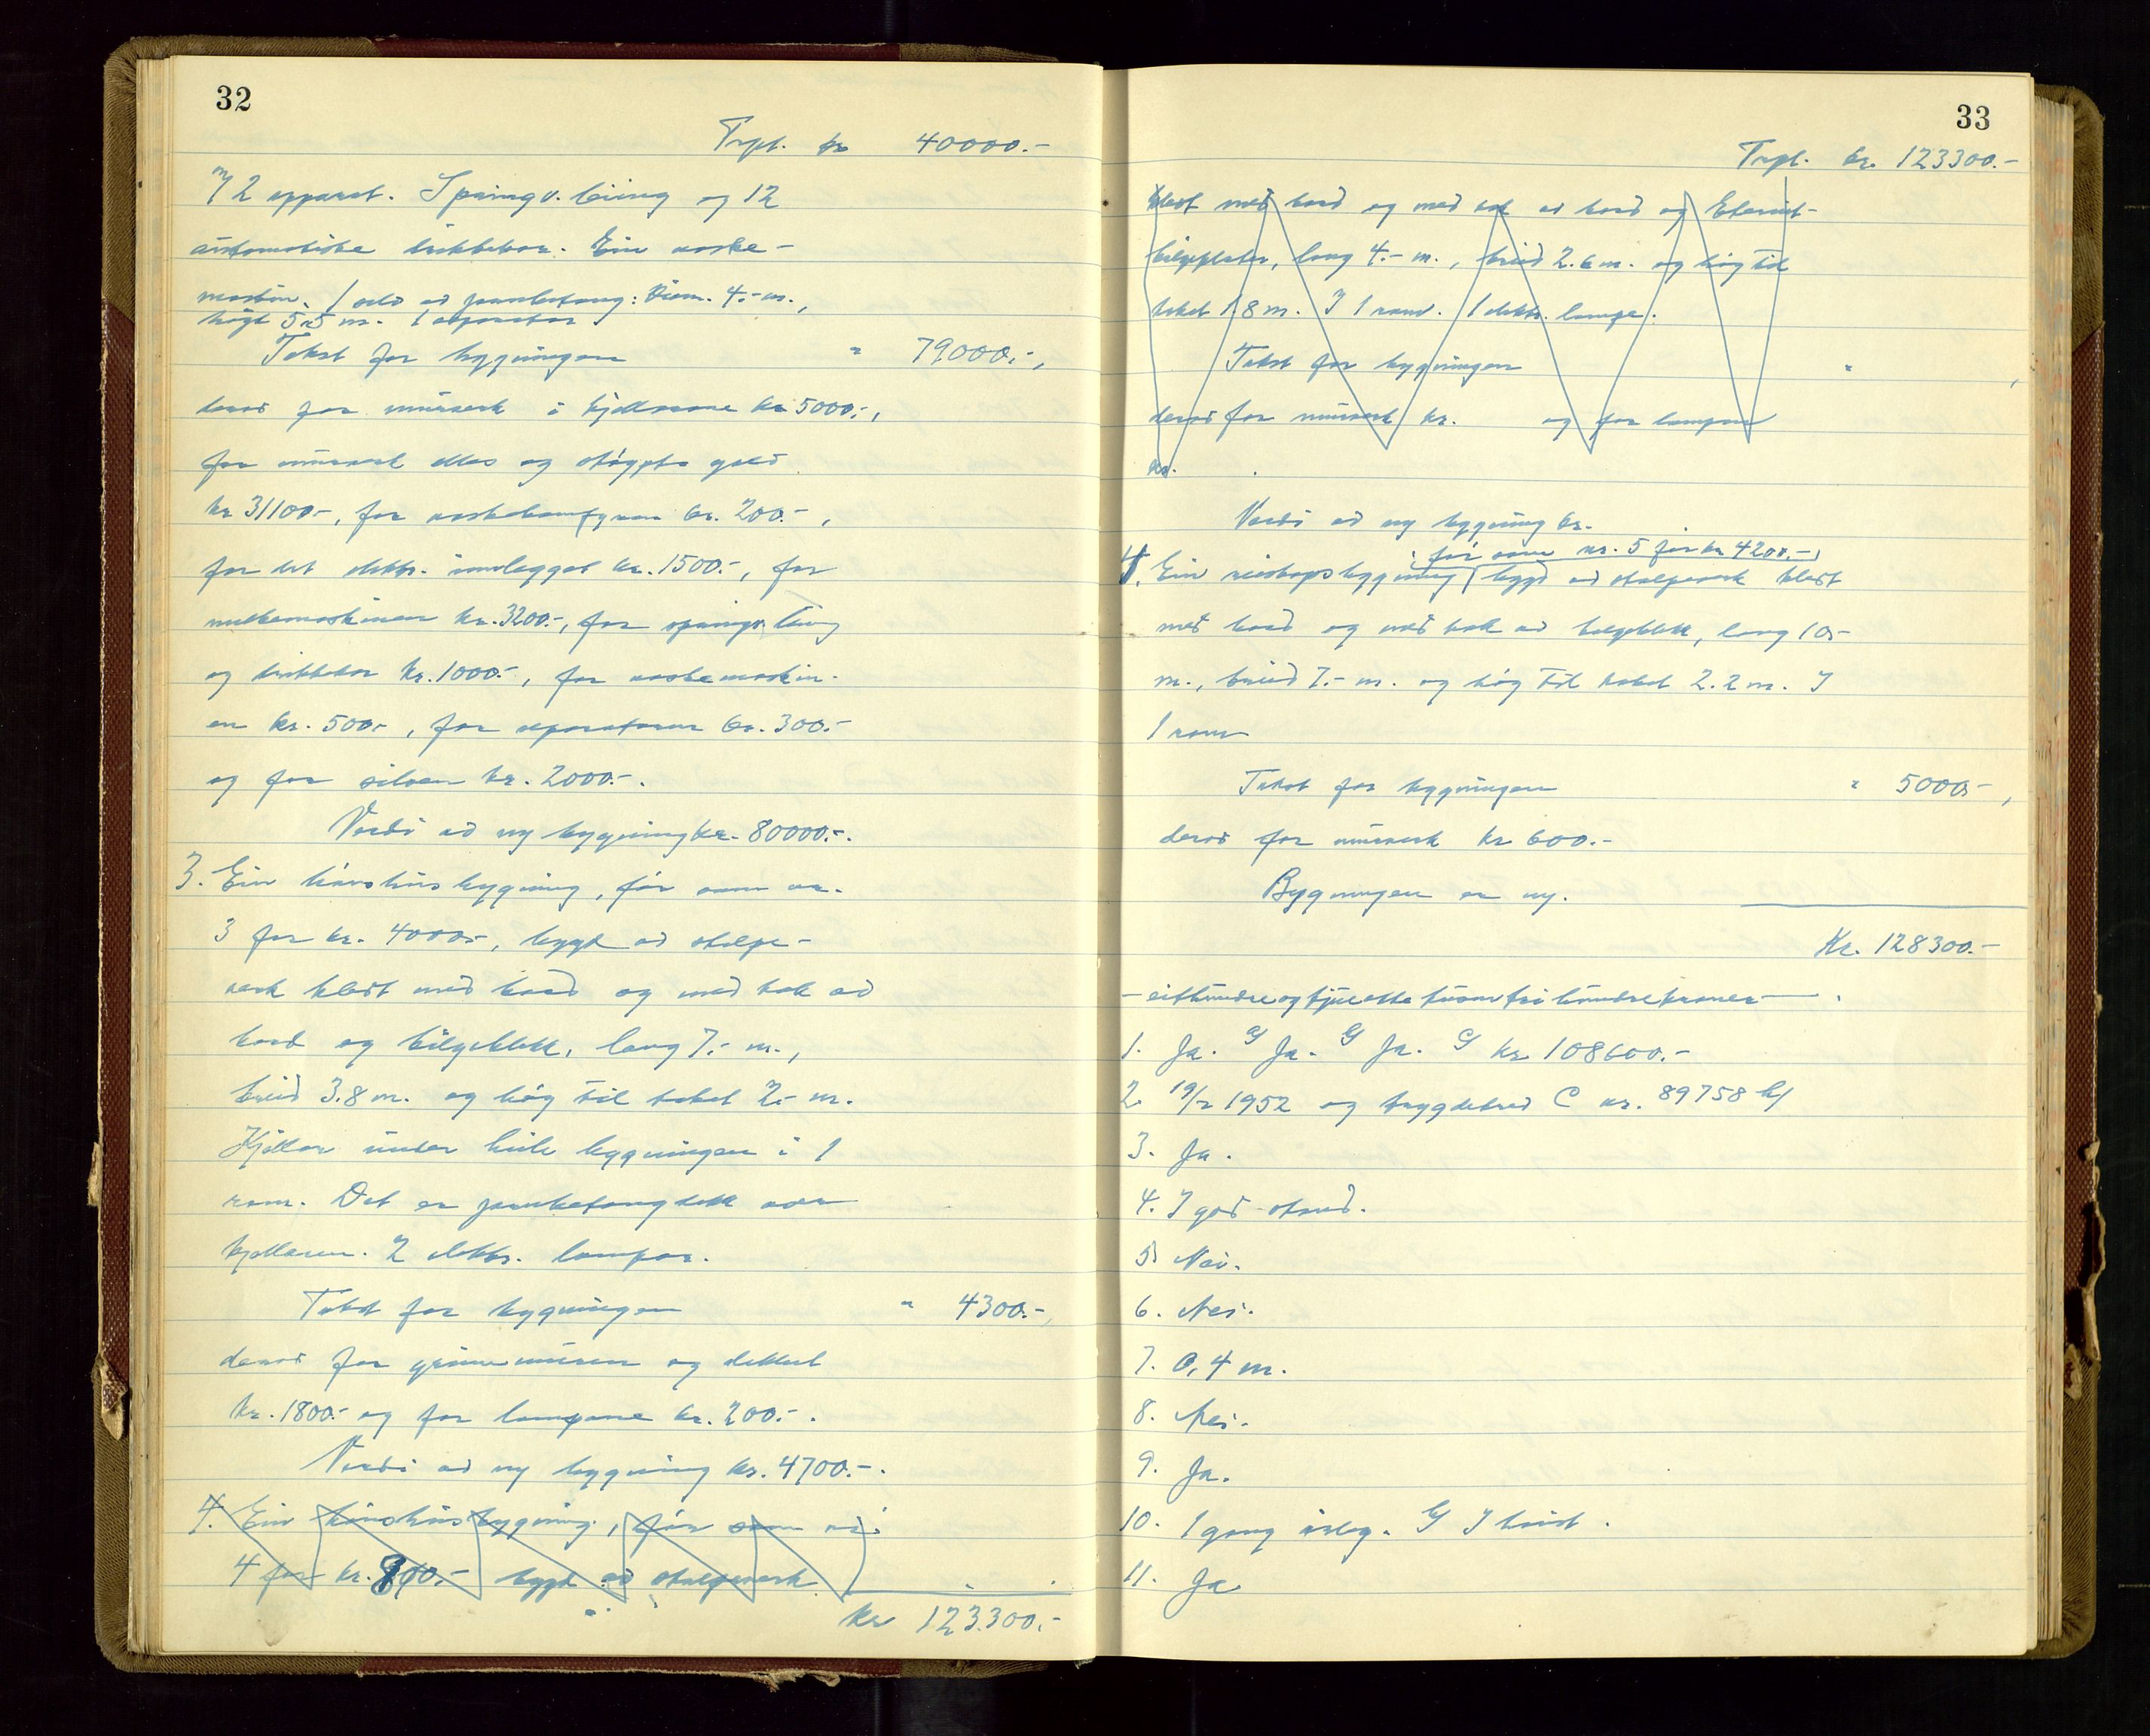 32
Trpt. kr 40000.-
m/ 2 apparat. Springv. leiing og 12
automatiske drikkekar. Ein vaske-
maskin. 1 silo av jarnbetong: Diam. 4.- m.,
høgt 5.5 m. 1 separator
Takst for bygningen " 79000.-,
derav for murverk i kjellarane kr 5000.-,
for murverk elles og støypte golv
kr 31100.-, for vaskekomfyren kr. 200.-,
for det elektr. innlegget kr. 1500.-, for
mulkemaskinen kr. 3200.-, for springv. leiing
og drikkekar kr. 1000.-, for vaskemaskin-
en kr. 500.-, for separatoren kr. 300.-
og for siloen kr. 2000.-.
Verdi av ny bygning kr. 80000.-.
3. Ein hønshusbygning, før som nr.
3 for kr. 4000.-, bygt av stolpe-
verk kledt med bord og med tak av
bord og bølgeblikk, lang 7.- m.,
breid 3.8 m. og høg til taket 2.- m.
Kjellar under heile bygningen i 1
rom. Det er jarnbetongdekk over
kjellaren. 2 elektr. lampor.
Takst for bygningen " 4300.-,
derav for grunnmuren og dekket
kr. 1800.- og for lampone kr. 200.-.
Verdi av ny bygning kr. 4700.-.
4. Ein hønshusbygning, før som nr.
4 for kr. 800.- bygt av stolpeverk
kr 123.300.-
33
Trpt. kr. 123300.-
kledt med bord og med tak av bord og Eternit-
bølgeplater, lang 4.- m., breid 2.6 m. og høg til
taket 1.8 m. I 1 rom. 1 elektr. lampe.
Takst for bygningen " ,
derav for murverk kr. og for lampen
kr. .
Verdi av ny bygning kr.
før som nr. 5 for kr 4200.-,
4. Ein reiskapsbygning bygd av stolpeverk kledt
med bord og med tak av bølgeblikk, lang 10.-
m., breid 7.- m. og høg til taket 2.2 m. I
1 rom
Takst for bygningen " 5000.-,
derav for murverk kr 600.-
Bygningen er ny.
Kr. 128300.-
- eithundreogtjueåtte tusentrihundrekroner - .
1. Ja. G Ja. G Ja. G kr 108600.-
2. 19/2 1952 og trygdebrev C nr. 89758
3. Ja.
4. I god stand.
5. Nei.
6. Nei.
7. 0,4 m.
8. Nei.
9. Ja.
10. 1 gong årleg. G I haust.
11. Ja